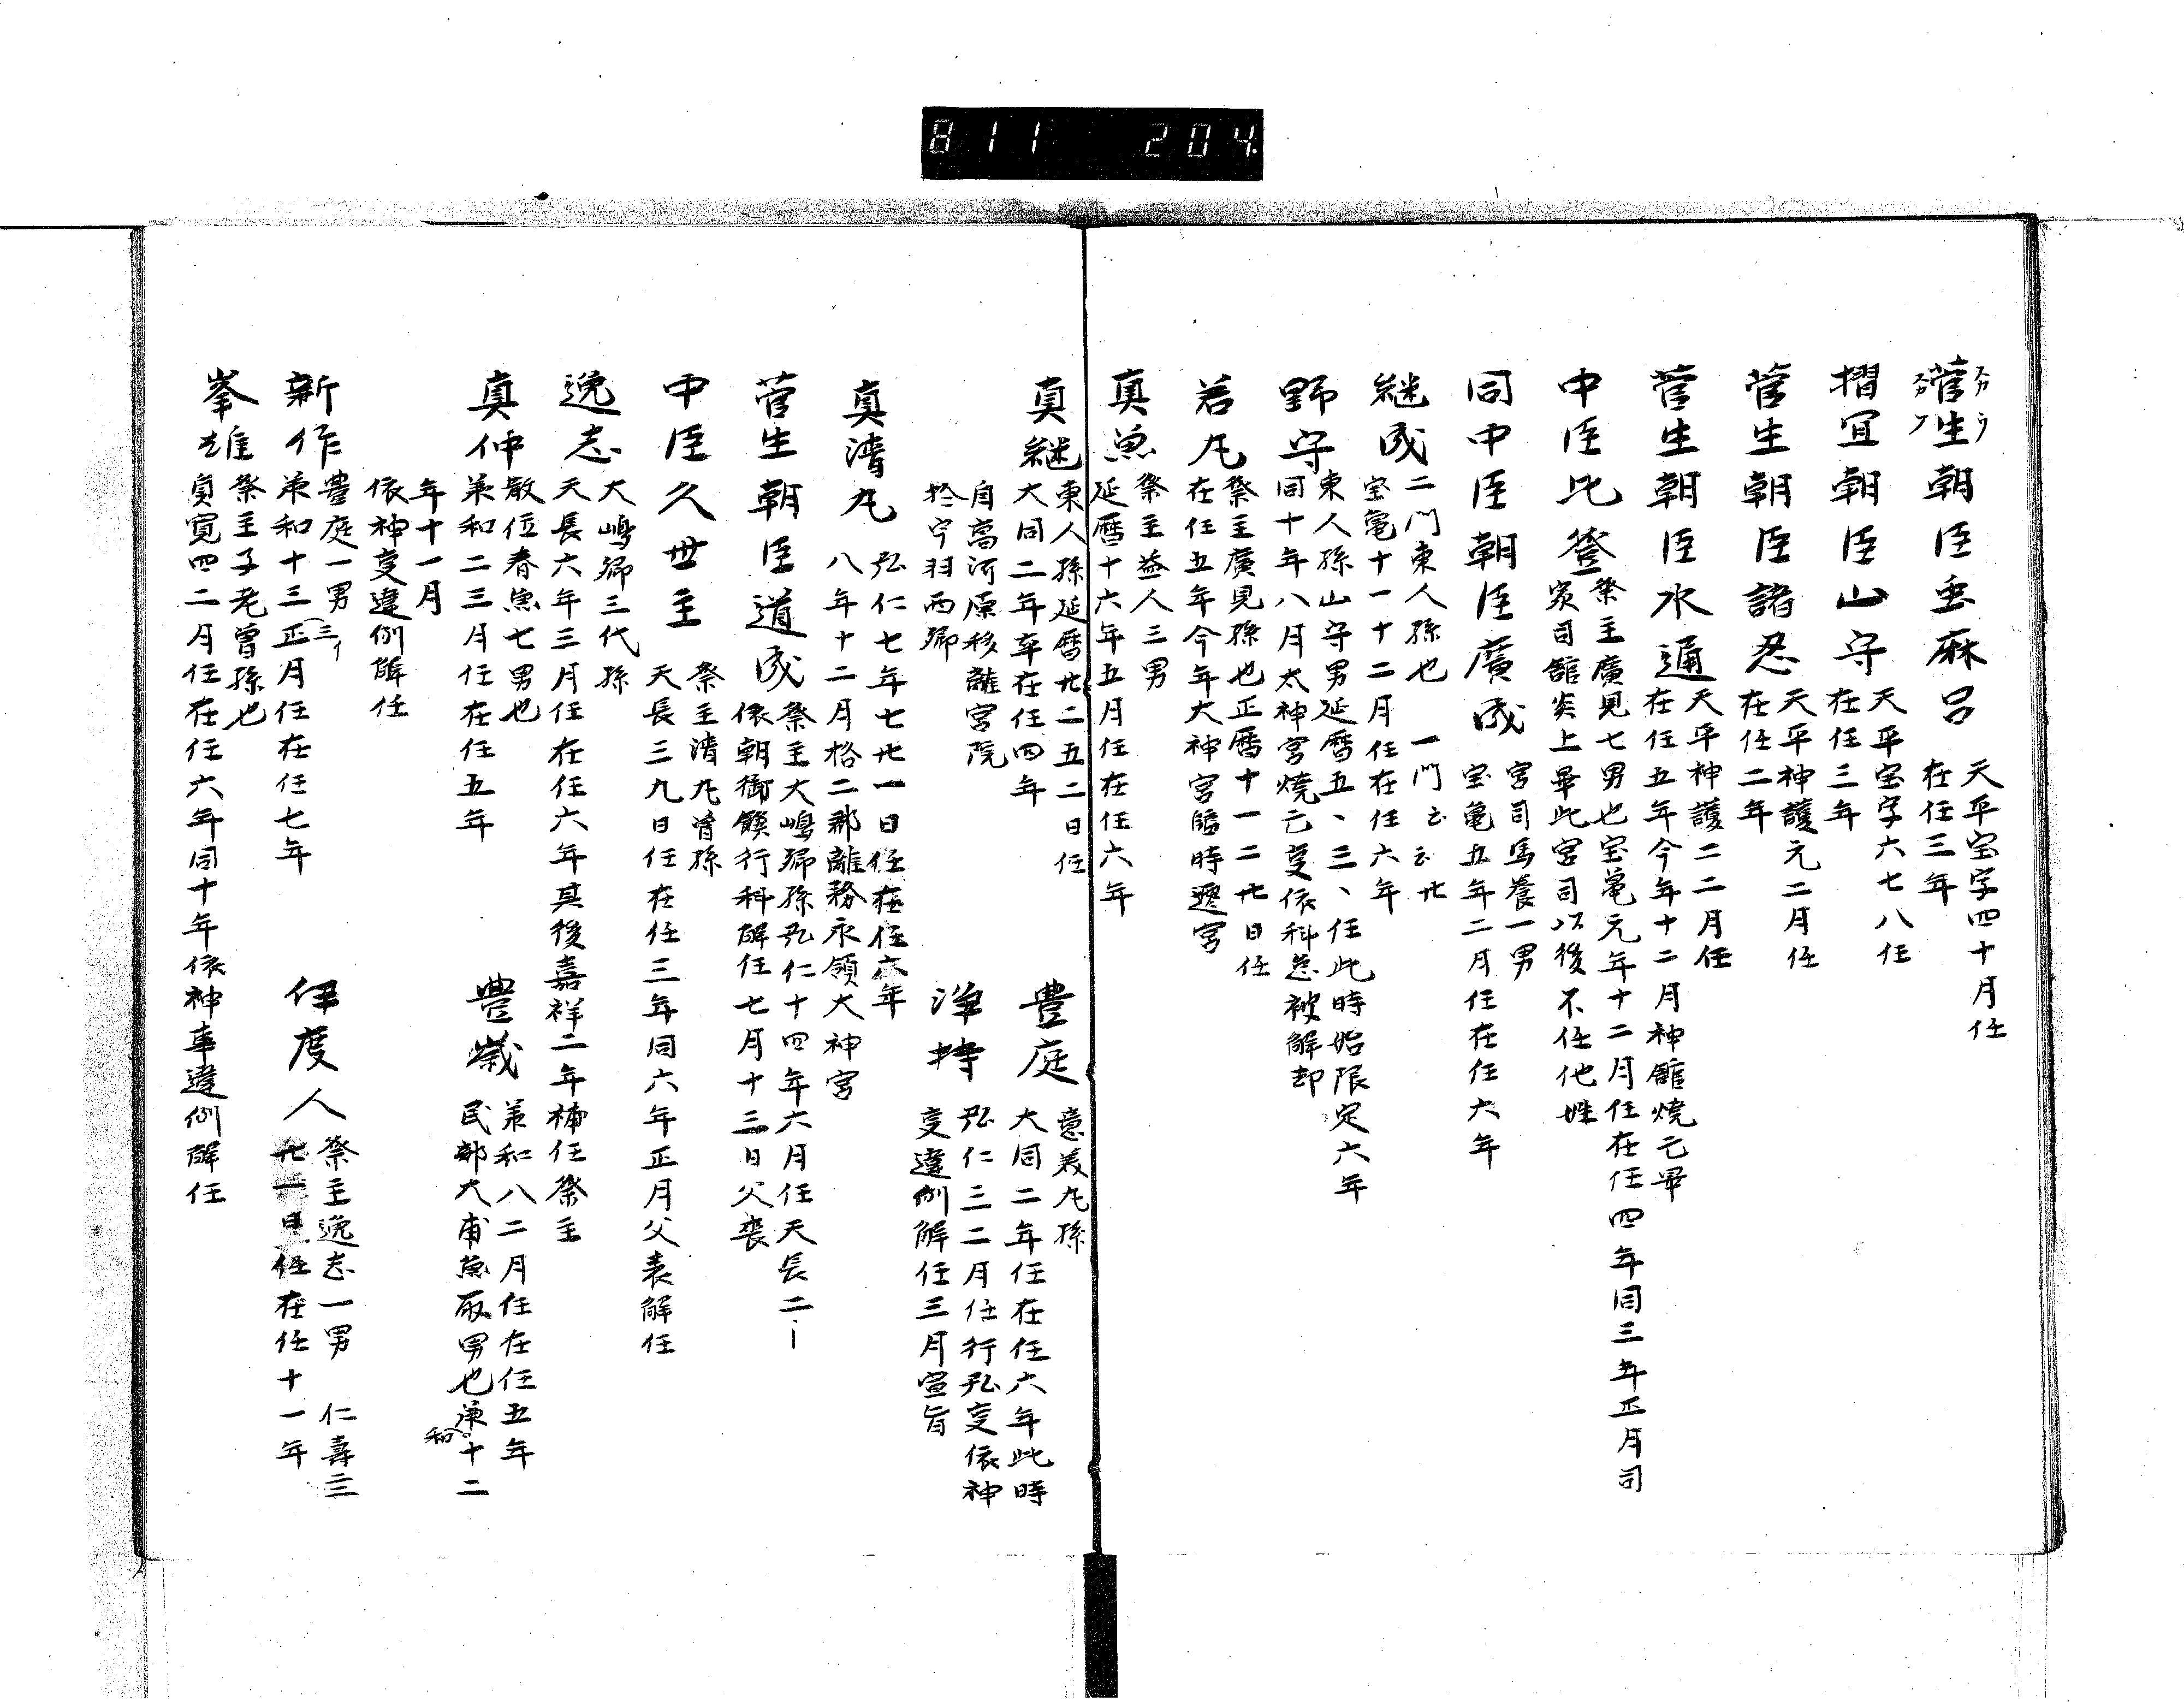 811 204
菅生朝臣䖝麻呂
天平宝字四十月任
在任三年
摺冝朝臣山守
天平宝字六七八任
在任三年
菅生朝臣諸忍
天平神護元二月任
在任二年
菅生朝臣水通
天平神護二二月任
在任五年今年十二月神舘焼亡畢
中臣比登
祭主廣見七男也宝亀元年十二月任在任四年同三年正月司
家司舘炎上畢此宮司以後不任他姓
同中臣朝臣廣成
宮司馬養一男
宝亀五年二月任在任六年
継成
二門東人孫也 一門云云
宝亀十一十二月任在任六年
野守
東人孫山守男延暦五、三、任此時始限定六年
同十年八月太神宮焼亡㕝依科怠被解却
若丸
祭主廣見孫也正暦十一二廿日任
在任五年今年大神宮臨時遷宮
真魚
祭主益人三男
延暦十六年五月任在任六年
真継
東人孫延暦廿二五二日任
大同二年卒在任四年
豊庭
意美丸孫
大同二年任在任六年此時
自高河原移離宮院
於宇羽西郷
淨持
弘仁三二月任行弘㕝依神
㕝違例解任三月宣旨
真清丸
弘仁七年七廿一日任在任六年
八年十二月格二郡離務永領大神宮
菅生朝臣道成
祭主大嶋孫弘仁十四年六月任天長二
依朝御饌行科解任七月十三日父喪
中臣久世主
祭主清丸曽孫
天長三九日任在任三年同六年正月父表解任
逸志
大嶋三代孫
天長六年三月任在任六年其後嘉祥二年補任祭主
真仲
散位春魚七男也
羕和二三月任在任五年
豊歳
羕和八二月任在任五年
民部大甫魚取男也羕和十二
年十一月
依神㕝違例解任
新作
豊庭一男三イ
羕和十三正月任在任七年
伊度人
祭主逸志一男 仁寿三
廿一日任在任十一年
峯雄
祭主子老曽孫也
貞寛四二月任在任六年同十年依神事違例解任